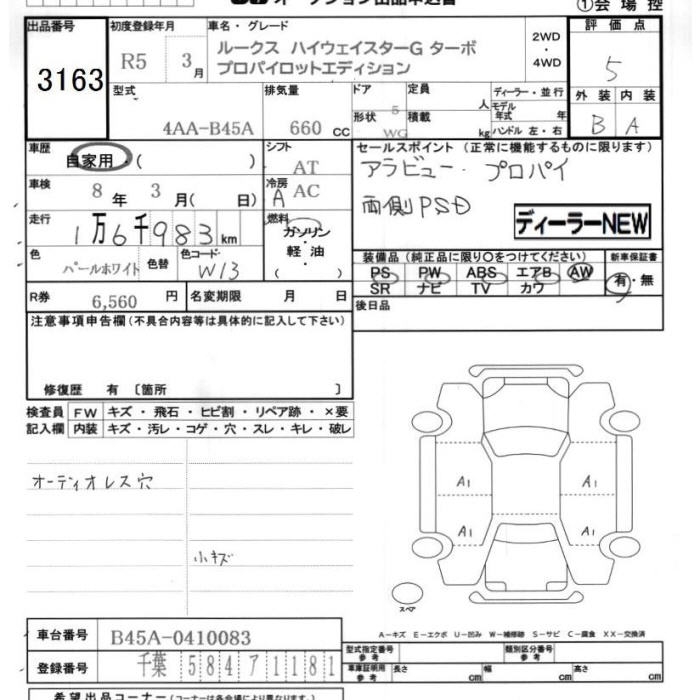 オークション出品申込書
①会場控
出品番号
3163
初度登録年月
R5 3月
車名・グレード
ルークス ハイウェイスターG ターボ
プロパイロットエディション
2WD
・
4WD
評価点
5
外装 内装
B A
型式
4AA-B45A
排気量
660 cc
ドア
5
形状
WG
定員
人
積載
kg
ディーラー・並行
モデル年式 年
ハンドル 左・右
車歴
自家用・( )
シフト
AT
車検
8年 3月( 日)
冷房
A AC
走行
1万6千983km
燃料
ガソリン・
軽・油
( )
色
パールホワイト
色替
色コード
W13
R券
6,560 円
名変期限 月 日
セールスポイント(正常に機能するものに限ります)
アラビュー・プロパイ
両側PSD
ディーラーNEW
装備品(純正品に限り〇をつけてください)
新車保証書
PS PW ABS エアB AW
SR ナビ TV カワ
有・無
後日品
注意事項申告欄(不具合内容等は具体的に記入して下さい)
修復歴 有 〔箇所 〕
検査員
記入欄
FW キズ・飛石・ヒビ割・リペア跡・×要
内装 キズ・汚レ・コゲ・穴・スレ・キレ・破レ
オーディオレス穴
小キズ
A1 A1
A1 A1
スペア
A-キズ E-エクボ U-凹み W-補修跡 S-サビ C-腐食 XX-交換済
車台番号
B45A-0410083
登録番号
千葉 584 71181
型式指定番号
参考
類別区分番号
参考
車庫証明用
参考
長さ cm 幅 cm 高さ cm
希望出品コーナー(コーナーは各会場により異なります)